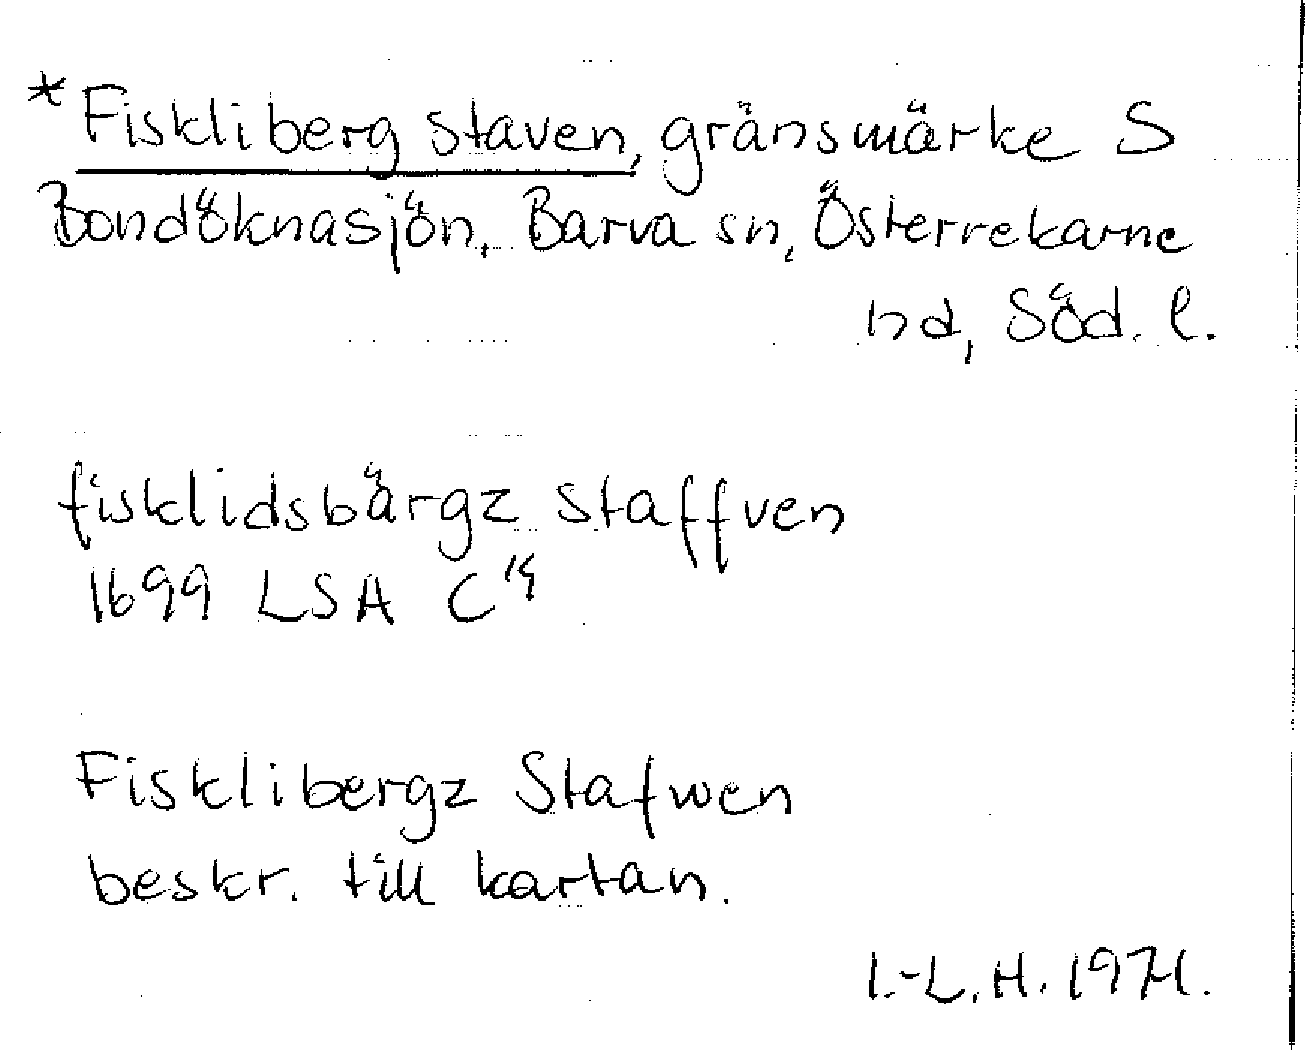 *Fiskliberg staven, gränsmärke S
Bondöknasjön, Barva sn, Österrekarne
hd, Söd. l.
fisklidsbärgz staffven
1699 LSA C
Fisklibergz Stafwen
beskr. till kartan.
I.-L. H. 1971.